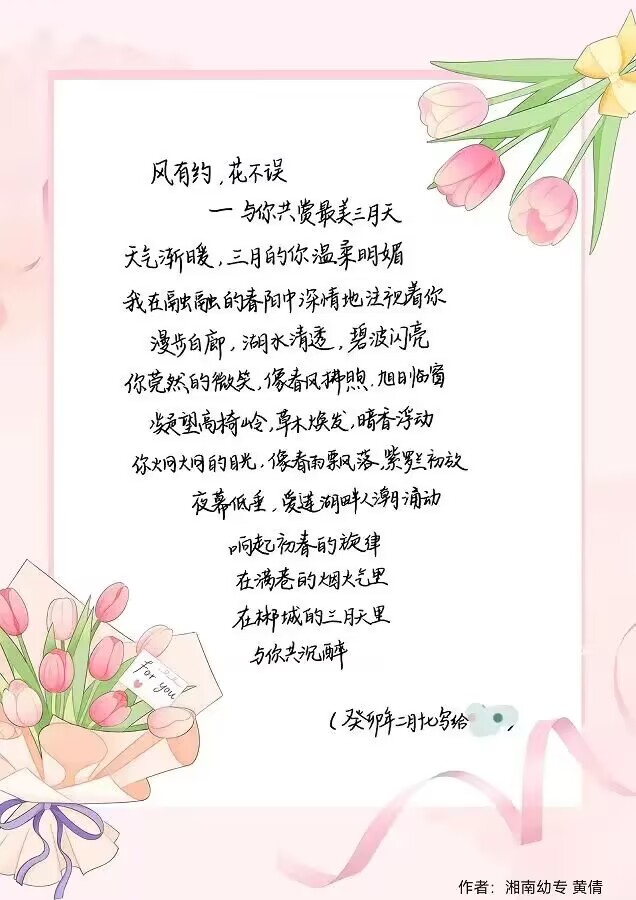 风有约，花不误
一与你共赏最美三月天
天气渐暖，三月的你温柔明媚
我在融融的春阳中深情地注视着你
漫步白廊，湖水清透，碧波闪亮
你莞然的微笑，像春风拂煦，旭日临窗
凝望高椅岭，草木焕发，暗香浮动
你炯炯的目光，像春雨飘落，紫罗兰初放
夜幕低垂，爱莲湖畔人潮涌动
响起初春的旋律
在满巷的烟火气里
在郴城的三月天里
与你共沉醉
（癸卯年二月十七写给 ）
for you
作者：湘南幼专 黄倩